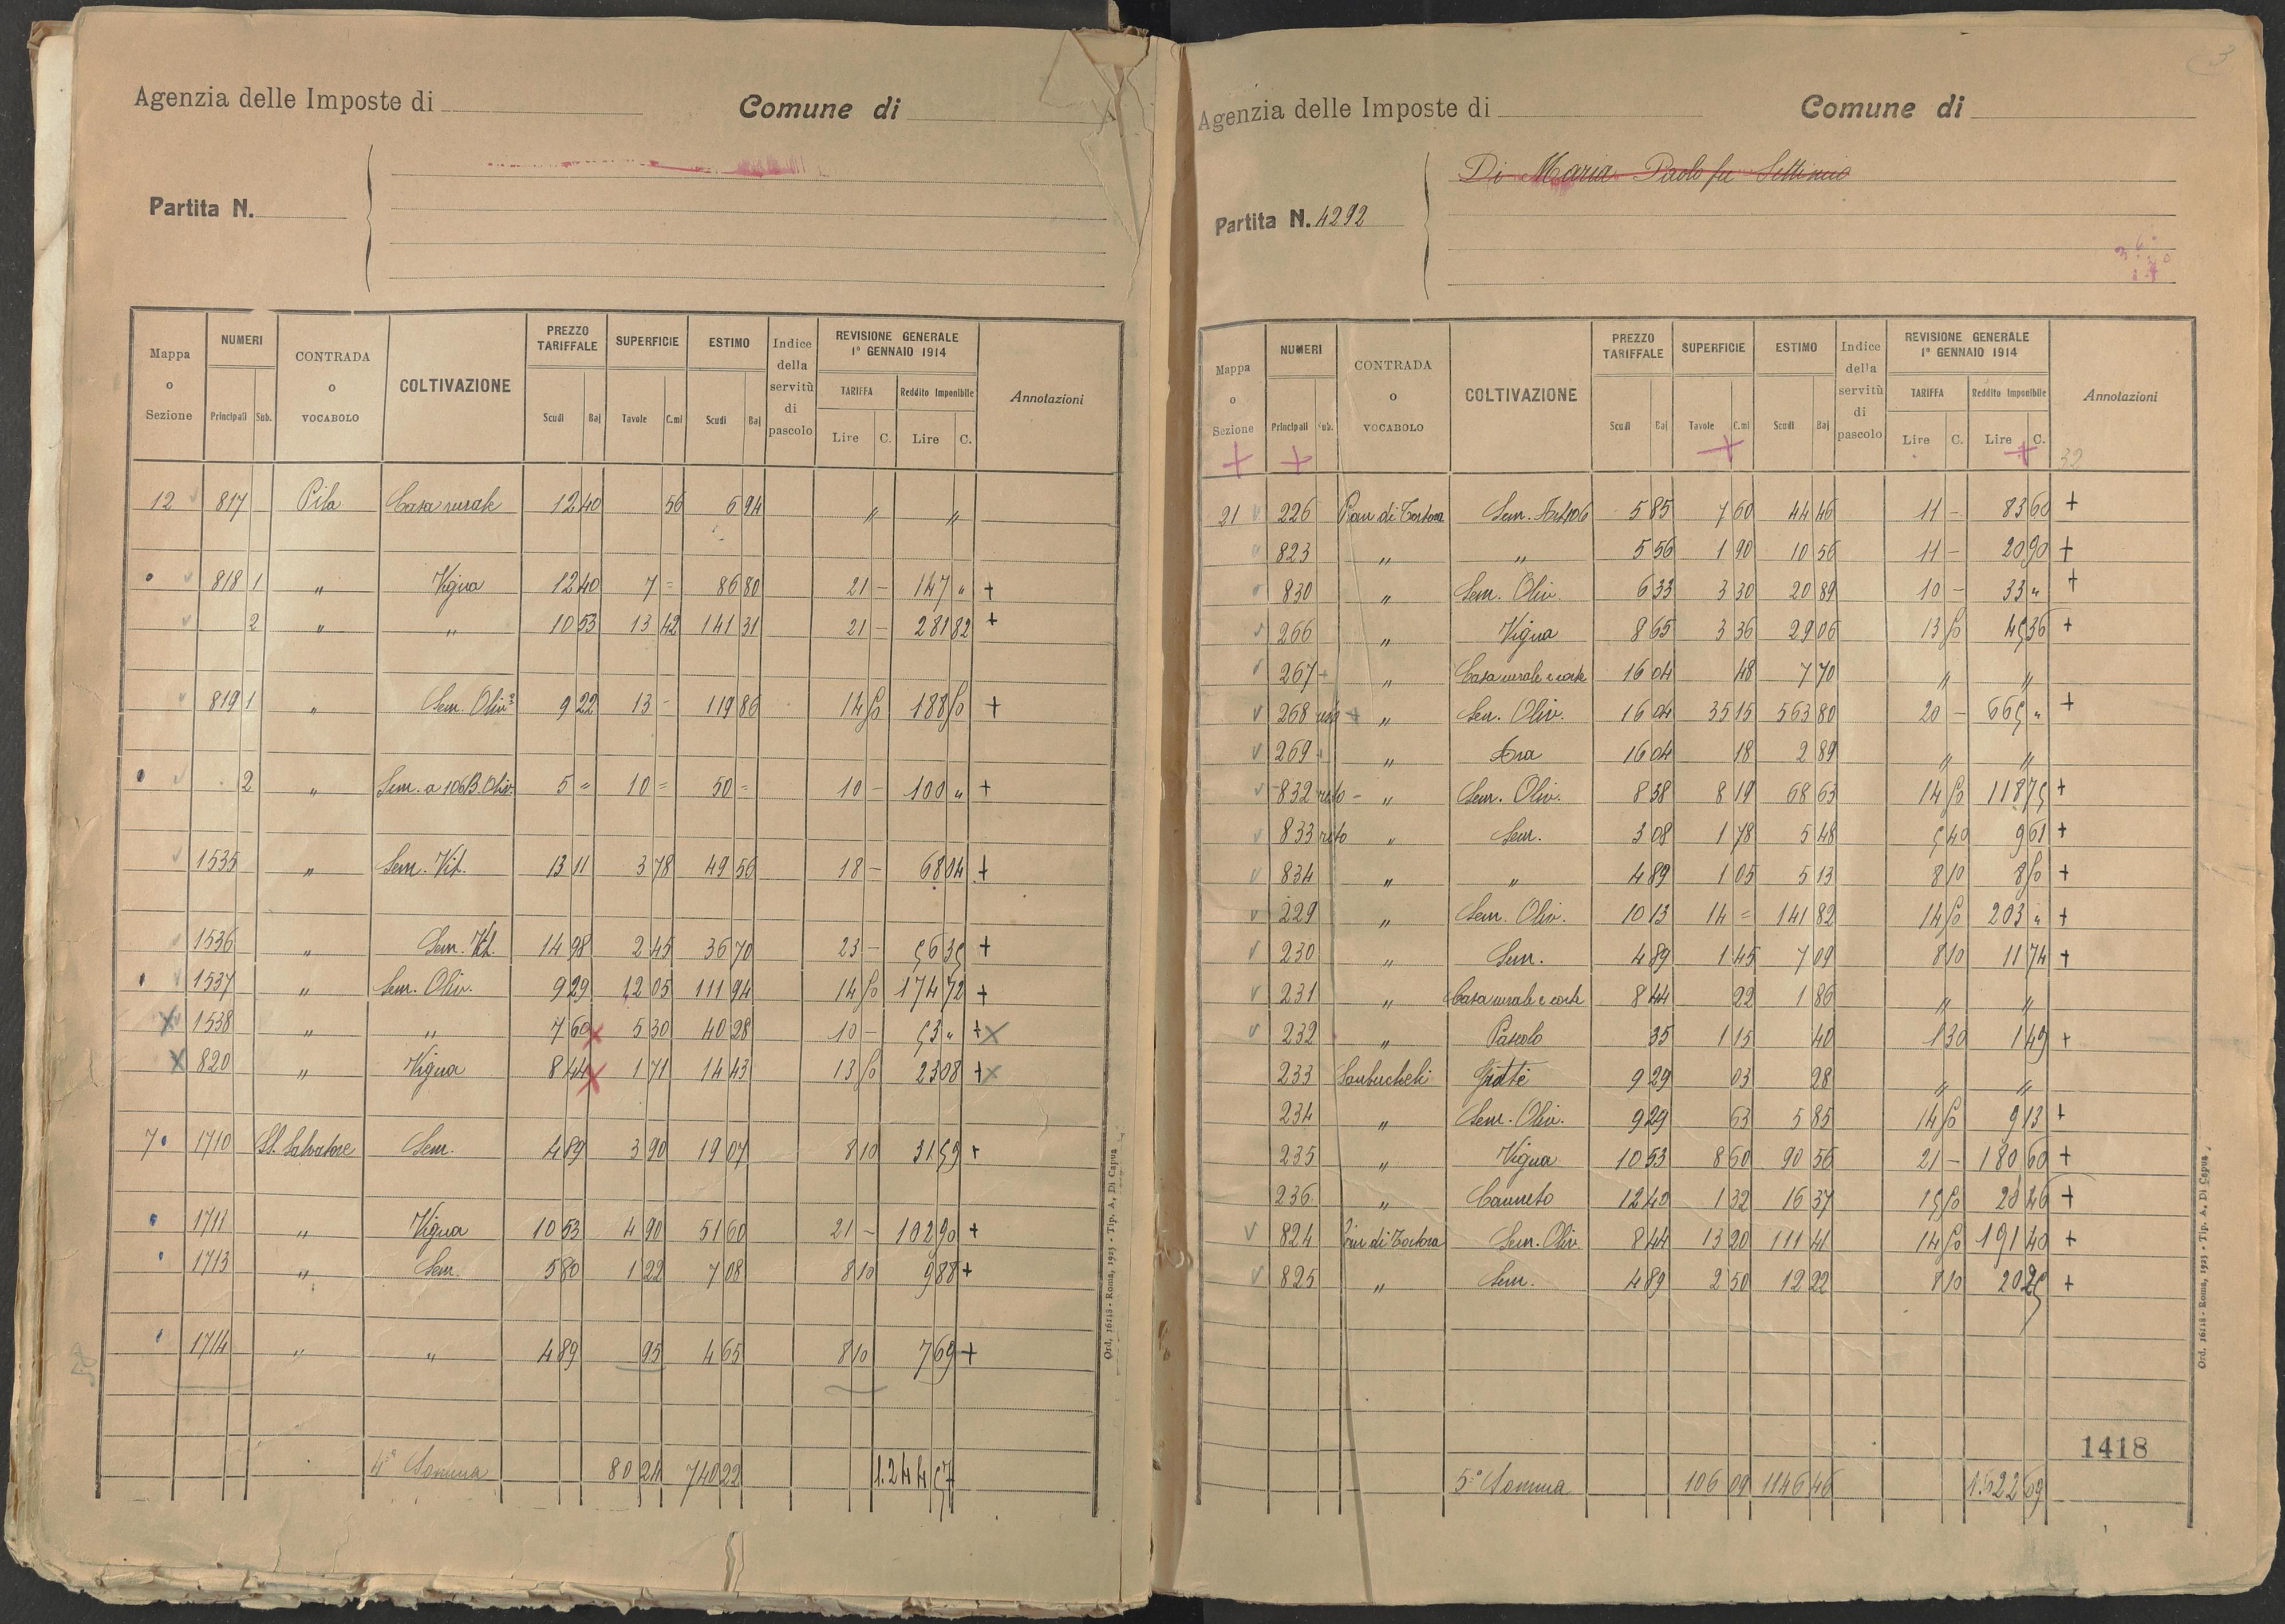 Agenzia delle Imposte di
Comune di
Partita N.
Mappa o Sezione
NUMERI
Principali Sub.
CONTRADA o VOCABOLO
COLTIVAZIONE
PREZZO TARIFFALE
Scudi Baj
SUPERFICIE
Tavole C.mi
ESTIMO
Scudi Baj
Indice della servitù di pascolo
REVISIONE GENERALE
1° GENNAIO 1914
TARIFFA
Lire C.
Reddito Imponibile
Lire C.
Annotazioni
12 817 Pila Casa rurale 12 40 56 6 94 " "
818 1 " Vigna 12 40 7 = 86 80 21 - 147 " +
2 " " 10 53 13 42 141 31 21 - 281 82 +
819 1 " Sem. Oliv. 9 22 13 - 119 86 14 50 188 50 +
2 " Sem. a 10 B. Oliv. 5 = 10 = 50 = 10 - 100 " +
1535 " Sem. Vit. 13 11 3 78 49 56 18 - 68 04 +
1536 " Sem. Vit. 14 98 2 45 36 70 23 - 56 35 +
1537 " Sem. Oliv. 9 29 12 05 111 94 14 50 174 72 +
X 1538 " " 7 60 x 5 30 40 28 10 - 53 " + X
X 820 " Vigna 8 44 x 1 71 14 43 13 50 23 08 + x
7 1710 St. Salvatore Sem. 4 89 3 90 19 07 8 10 31 59 +
1711 " Vigna 10 53 4 90 51 60 21 - 102 90 +
1713 " Sem. 5 80 1 22 7 08 8 10 9 88 +
1714 " " 4 89 95 4 65 8 10 7 69 +
4ª Somma 80 24 740 22 1.244 57
Ord. 16118 - Roma, 1923 - Tip. A. Di Capua
3
Agenzia delle Imposte di
Comune di
Partita N. 4292
Di Maria Paolo fu Settimio
Mappa o Sezione
NUMERI
Principali Sub.
CONTRADA o VOCABOLO
COLTIVAZIONE
PREZZO TARIFFALE
Scudi Baj
SUPERFICIE
Tavole C.mi
ESTIMO
Scudi Baj
Indice della servitù di pascolo
REVISIONE GENERALE
1° GENNAIO 1914
TARIFFA
Lire C.
Reddito Imponibile
Lire C.
Annotazioni
32
21 226 Pian di Tortora Sem. 5 85 7 60 44 46 11 - 83 60 +
823 " " 5 56 1 90 10 56 11 - 20 90 +
830 " Sem. Oliv. 6 33 3 30 20 89 10 - 33 " +
266 " Vigna 8 65 3 36 29 06 13 50 45 36 +
267 " Casa rurale e corte 16 04 48 7 70 " "
268 " Sem. Oliv. 16 04 35 15 563 80 20 - 665 " +
269 " Ara 16 04 18 2 89 " "
832 resto " Sem. Oliv. 8 38 8 19 68 63 14 50 118 75 +
833 resto " Sem. 3 08 1 78 5 48 5 40 9 61 +
834 " " 4 89 1 05 5 13 8 10 8 50 +
229 " Sem. Oliv. 10 13 14 = 141 82 14 50 203 " +
230 " Sem. 4 89 1 45 7 09 8 10 11 74 +
231 " Casa rurale e corte 8 44 22 1 86 " "
232 " Pascolo 35 1 15 40 1 30 1 49 +
233 9 29 03 28 " "
234 " Sem. Oliv. 9 29 63 5 85 14 50 9 13 +
235 " Vigna 10 53 8 60 90 56 21 - 180 60 +
236 " Canneto 12 40 1 32 16 37 15 50 20 46 +
824 Pian di Tortora Sem. Oliv. 8 44 13 20 111 41 14 50 191 40 +
825 " Sem. 4 89 2 50 12 22 8 10 20 25 +
5ª Somma 106 09 1146 46 1.622 69
1418
Ord. 16118 - Roma, 1923 - Tip. A. Di Capua